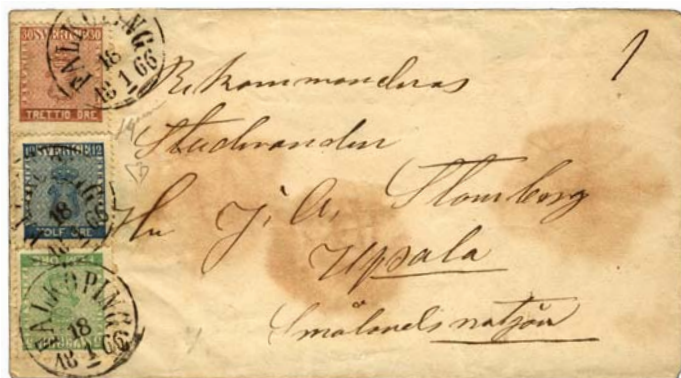 30 SVERIGE 30
TRETTIO ÖRE
FALKÖPING
18
18 1 66
12 SVERIGE 12
TOLF ÖRE
18
18 1 66
FALKÖPING
18
18 1 66
1
Rekommenderas
Studeranden
Hr J. A. Stomberg
Upsala
Smålands nation